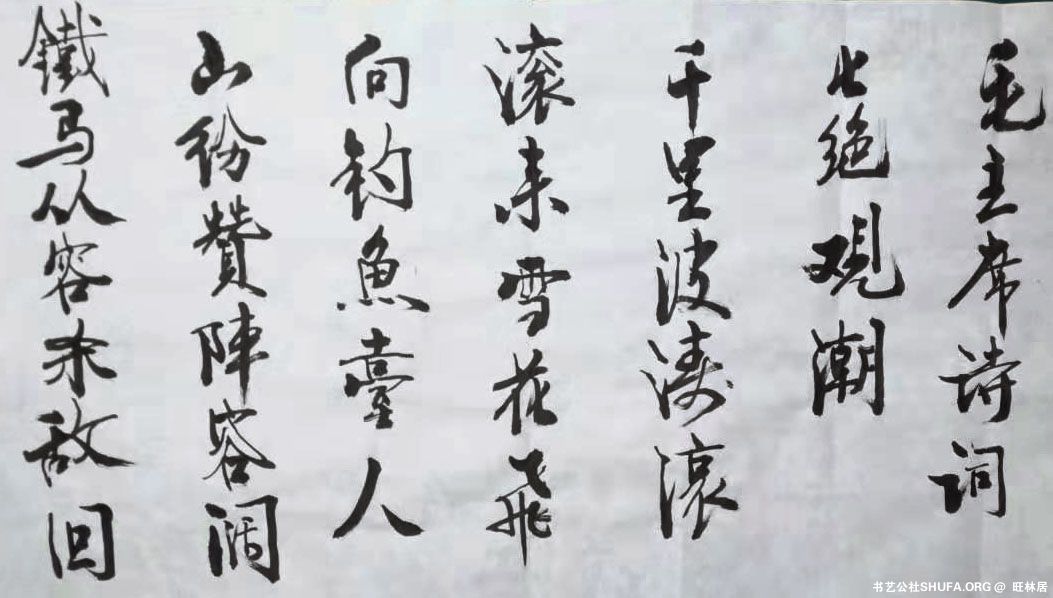 毛主席诗词
七绝观潮
千里波涛滚
滚来雪花飛
向钓魚臺人
山纷赞陣容阔
鐵马从容杀敌回
书艺公社SHUFA.ORG @ 旺林居